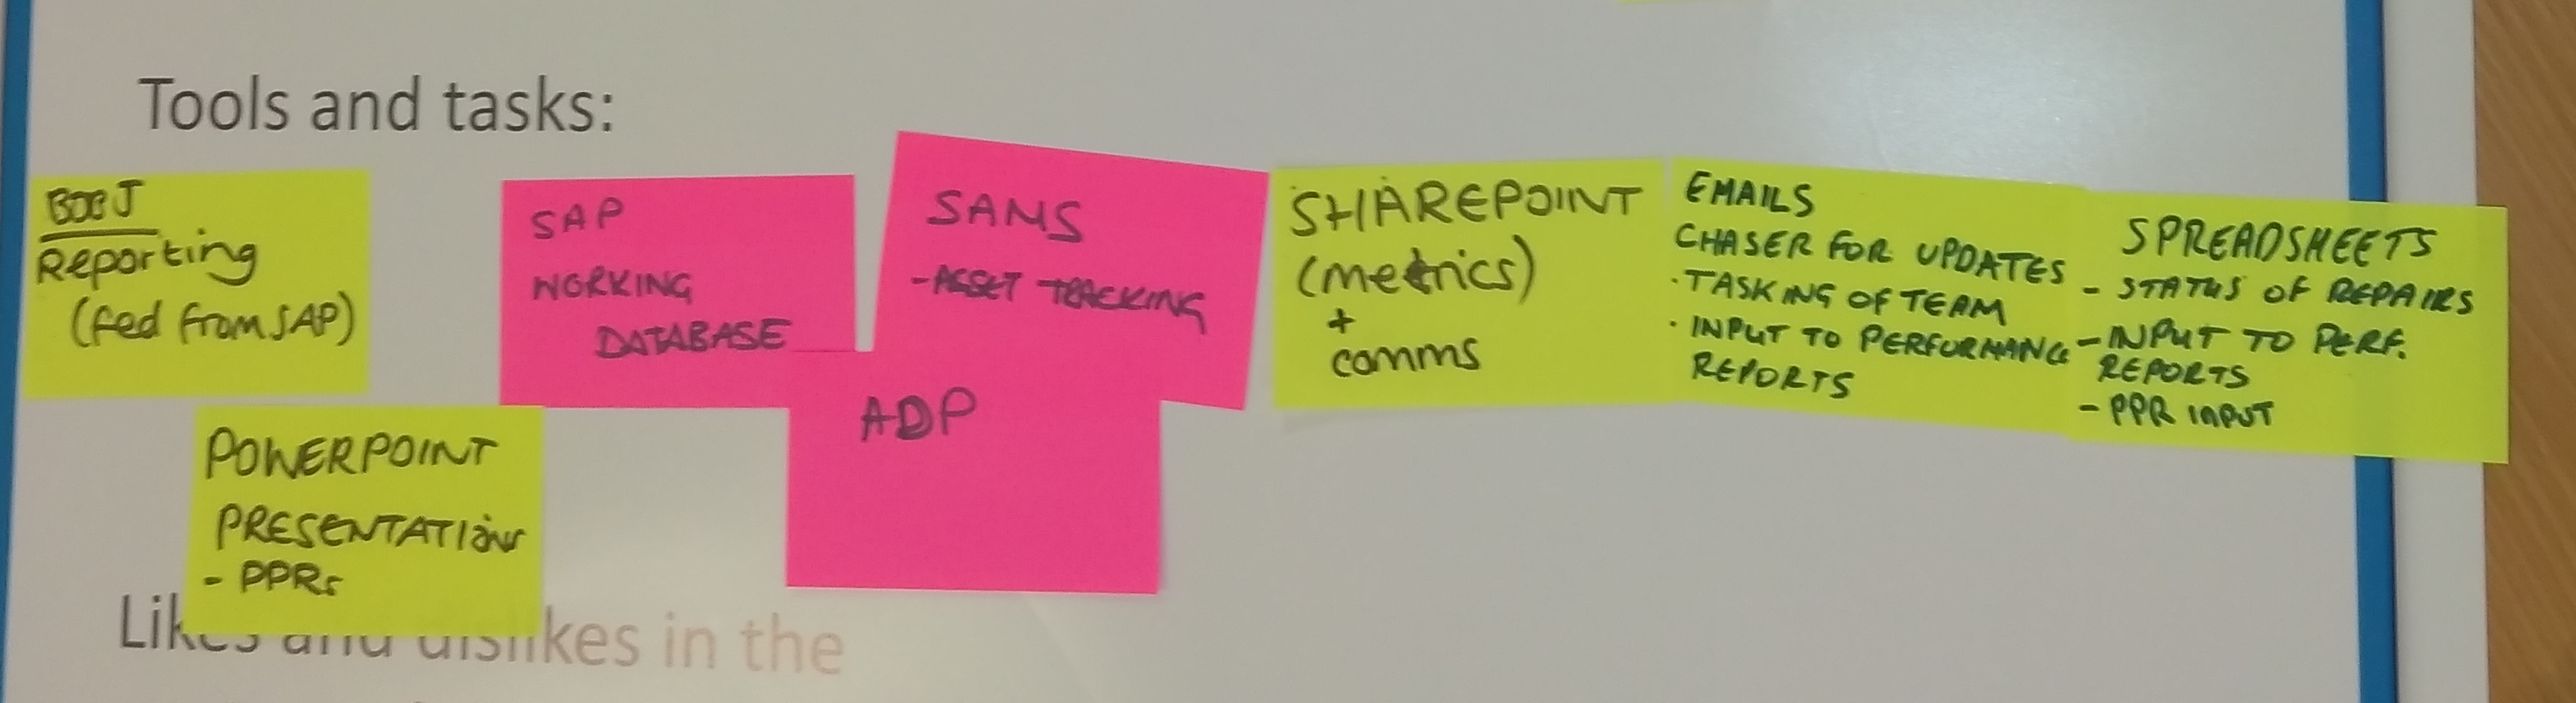 Tools and tasks:
BOBJ
Reporting
(fed from SAP)
SAP
WORKING
DATABASE
SAMS
-ASSET TRACKING
SHAREPOINT
(metrics)
+
comms
EMAILS
CHASER FOR UPDATES
· TASKING OF TEAM
· INPUT TO PERFORMANCE
REPORTS
SPREADSHEETS
- STATUS OF REPAIRS
- INPUT TO PERF.
REPORTS
- PPR INPUT
POWERPOINT
PRESENTATIONS
- PPRs
ADP
Likes and dislikes in the